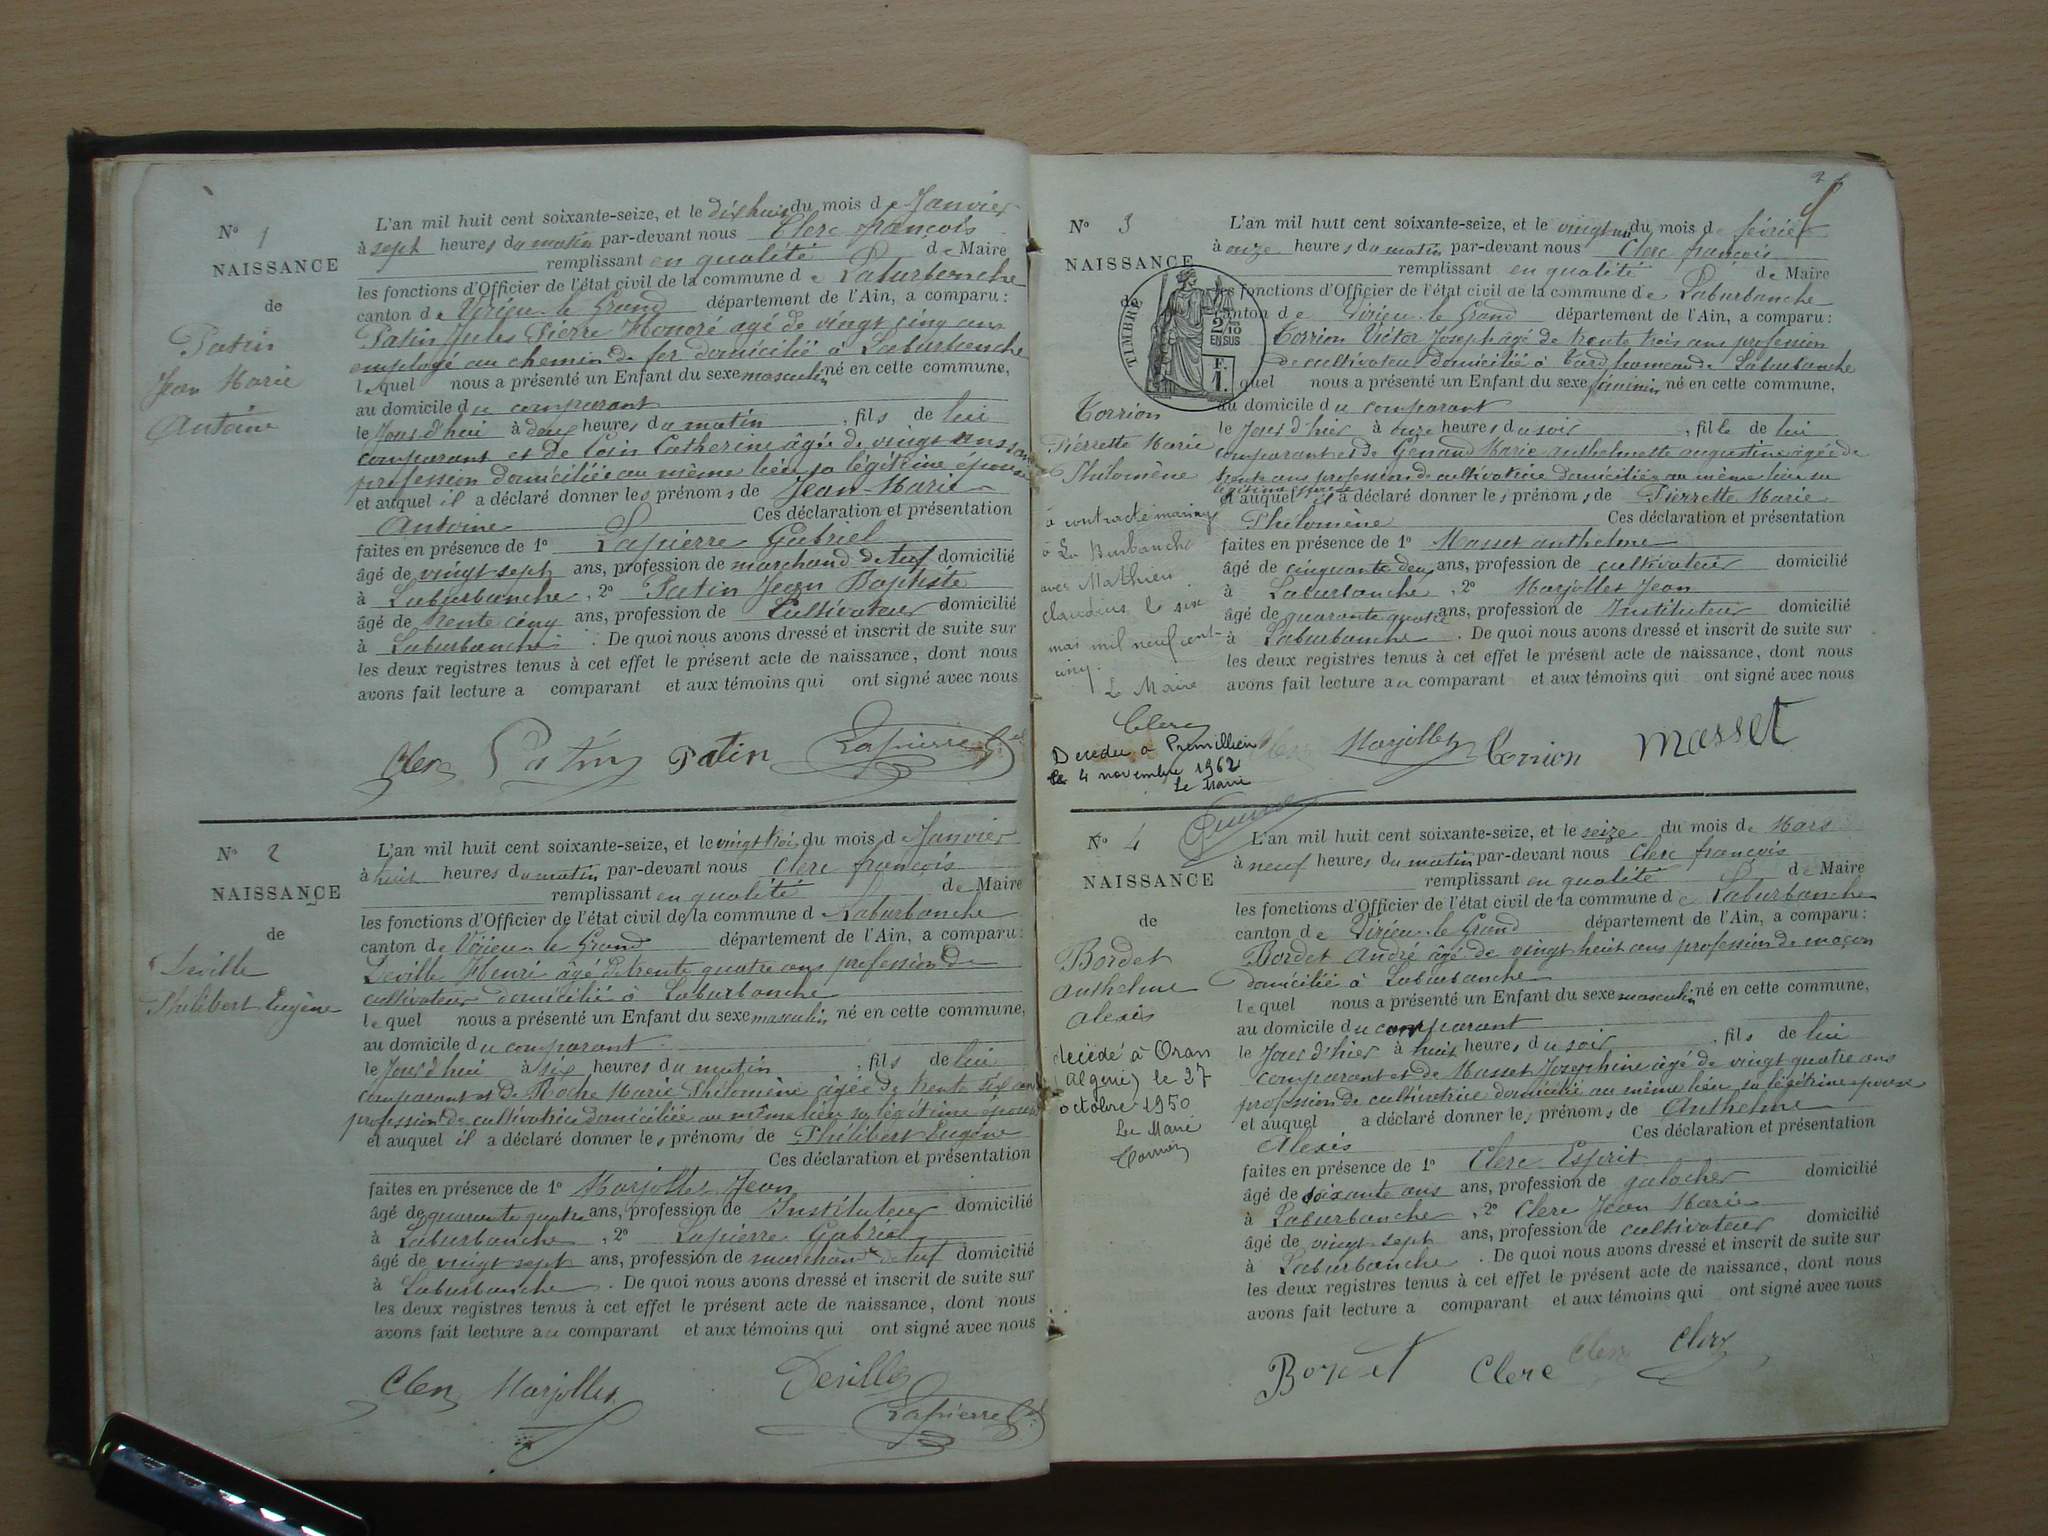 No 1
NAISSANCE
de
Patin
Jean Marie
Antoine
L'an mil huit cent soixante-seize, et le dix huit du mois de Janvier
à sept heures du matin par-devant nous Clerc françois
remplissant en qualité de Maire
les fonctions d'Officier de l'état civil de la commune de Laburbanche
canton de Virieu le Grand département de l'Ain, a comparu :
Patin Jules Pierre Honoré agé de vingt cinq ans
employé au chemin de fer domicilié à Laburbanche
lequel nous a présenté un Enfant du sexe masculin né en cette commune,
au domicile du comparant
le Jour d'hui à deux heures du matin , fils de lui
comparant et de Catherine âgée de vingt ans sans
profession domiciliée au même lieu sa légitime épouse
et auquel il a déclaré donner les prénoms de Jean-Marie
Antoine Ces déclaration et présentation
faites en présence de 1o Lapierre Gabriel
âgé de vingt sept ans, profession de marchand de tuf domicilié
à Laburbanche , 2o Patin Jean Baptiste
âgé de trente cinq ans, profession de Cultivateur domicilié
à Laburbanche . De quoi nous avons dressé et inscrit de suite sur
les deux registres tenus à cet effet le présent acte de naissance, dont nous
avons fait lecture a comparant et aux témoins qui ont signé avec nous
Clerc Patin Patin Lapierre Gel
No 2
NAISSANCE
de
Deville
Philibert Eugène
L'an mil huit cent soixante-seize, et le vingt trois du mois de Janvier
à huit heures du matin par-devant nous Clerc françois
remplissant en qualité de Maire
les fonctions d'Officier de l'état civil de la commune d Laburbanche
canton de Virieu le Grand département de l'Ain, a comparu :
Deville Henri âgé de trente quatre ans profession de
cultivateur domicilié à Laburbanche
lequel nous a présenté un Enfant du sexe masculin né en cette commune,
au domicile du comparant
le Jour d'hui à six heures du matin , fils de lui
comparant et de Roche Marie Phélomène âgée de trente six ans
profession de cultivatrice domiciliée au même lieu sa légitime épouse
et auquel il a déclaré donner les prénoms de Phélibert Eugène
Ces déclaration et présentation
faites en présence de 1o Marjollet Jean
âgé de quarante quatre ans, profession de Instituteur domicilié
à Laburbanche , 2o Lapierre Gabriel
âgé de vingt sept ans, profession de marchand de tuf domicilié
à Laburbanche . De quoi nous avons dressé et inscrit de suite sur
les deux registres tenus à cet effet le présent acte de naissance, dont nous
avons fait lecture au comparant et aux témoins qui ont signé avec nous
Clerc Marjollet Deville
Lapierre Gel
2
No 3
NAISSANCE
de
TIMBRE
2/10
EN SUS
F.
1.
Torrion
Pierrette Marie
Philomène
à contracté mariage
à La Burbanche
avec Mathieu
claudius le six
mai mil neuf cent
cinq.
Le Maire
Clerc
Decedee a Premillieu
le 4 novembre 1962
Le Maire
L'an mil huit cent soixante-seize, et le vingt un du mois de février
à onze heures du matin par-devant nous Clerc françois
remplissant en qualité de Maire
les fonctions d'Officier de l'état civil de la commune de Laburbanche
canton de Virieu le Grand département de l'Ain, a comparu :
Torrion Victor Joseph âgé de trente trois ans profession
de cultivateur domicilié à hameau de Laburbanche
quel nous a présenté un Enfant du sexe féminin né en cette commune,
au domicile du comparant
le Jour d'hier à onze heures du soir , fille de lui
comparant et de Genand Marie anthelmette augustine âgée de
trente ans profession de cultivatrice domiciliée au même lieu sa
légitime épouse
et auquel il a déclaré donner les prénoms de Pierrette Marie
Phélomène Ces déclaration et présentation
faites en présence de 1o Masset anthelme
âgé de cinquante deux ans, profession de cultivateur domicilié
à Laburbanche , 2o Marjollet Jean
âgé de quarante quatre ans, profession de Instituteur domicilié
à Laburbanche . De quoi nous avons dressé et inscrit de suite sur
les deux registres tenus à cet effet le présent acte de naissance, dont nous
avons fait lecture au comparant et aux témoins qui ont signé avec nous
Clerc Marjollet Torrion Masset
No 4
NAISSANCE
de
Bordet
anthelme
alexis
décédé à Oran
(Algérie) le 27
octobre 1950
Le Maire
L'an mil huit cent soixante-seize, et le seize du mois de Mars
à neuf heures du matin par-devant nous Clerc françois
remplissant en qualité de Maire
les fonctions d'Officier de l'état civil de la commune de Laburbanche
canton de Virieu le Grand département de l'Ain, a comparu :
Bordet André âgé de vingt huit ans profession de maçon
domicilié à Laburbanche
lequel nous a présenté un Enfant du sexe masculin né en cette commune,
au domicile du comparant
le Jour d'hier à huit heures du soir , fils de lui
comparant et de Masset Josephine âgé de vingt quatre ans
profession de cultivatrice domicilié au même lieu sa légitime épouse
et auquel a déclaré donner les prénoms de Anthelme
Alexis Ces déclaration et présentation
faites en présence de 1o Clerc Esprit
âgé de soixante ans ans, profession de galocher domicilié
à Laburbanche , 2o Clerc Jean Marie
âgé de vingt sept ans, profession de cultivateur domicilié
à Laburbanche . De quoi nous avons dressé et inscrit de suite sur
les deux registres tenus à cet effet le présent acte de naissance, dont nous
avons fait lecture a comparant et aux témoins qui ont signé avec nous
Bordet Clerc Clerc Clerc